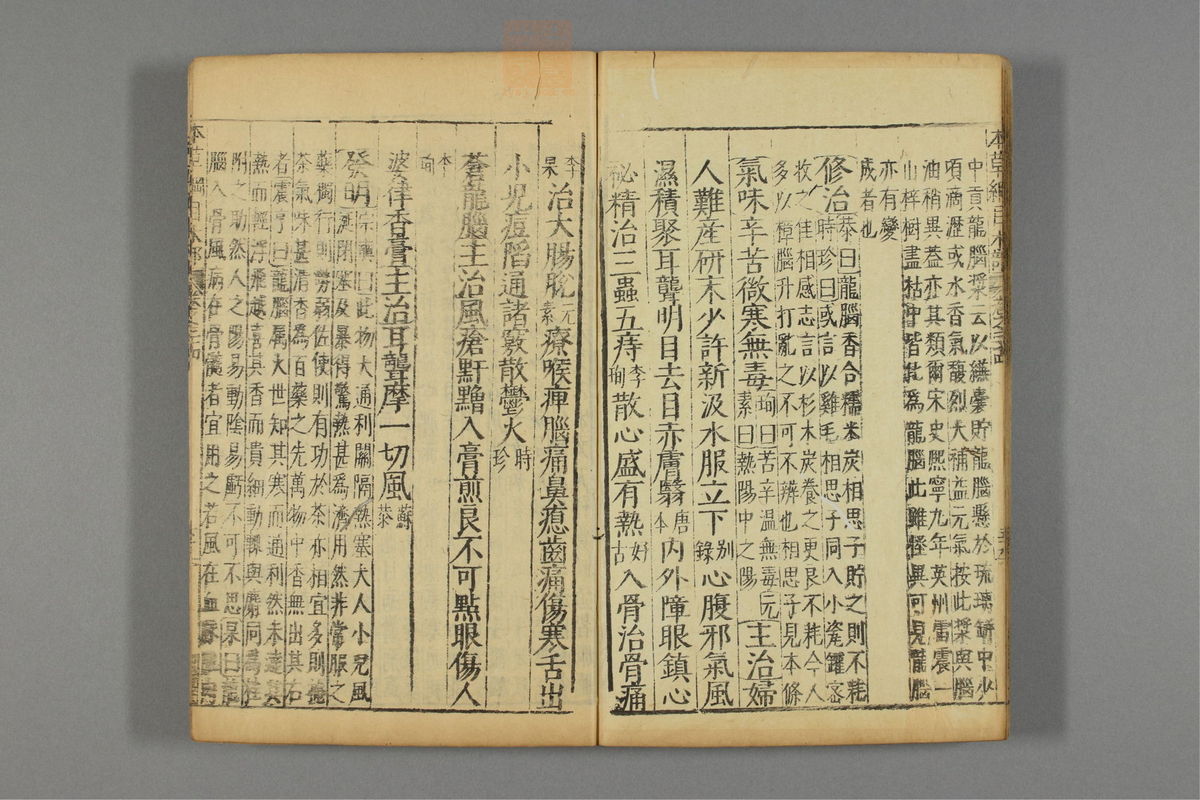 本草綱目木部卷之三十四
中貢龍腦漿云以縑囊貯龍腦懸於琉璃缾中少
頃滴瀝或水香氣馥烈大補益元氣按此漿與腦
油稍異蓋亦其類爾宋史熙寧九年英州雷震一
山梓樹盡枯中皆化為龍腦此雖怪異可見龍腦
亦有變
成者也
修治恭曰龍腦香合糯米炭相思子貯之則不耗
時珍曰或言以雞毛相思子同入小瓷罐密
收之佳相感志言以杉木炭養之更良不耗今人
多以樟腦升打亂之不可不辨也相思子見本條
氣味辛苦微寒無毒珣曰苦辛温無毒元素曰熱陽中之陽主治婦
人難産研末少許新汲水服立下別錄心腹邪氣風
濕積聚耳聾明目去目赤膚翳唐本内外障眼鎮心
祕精治三蟲五痔李珣散心盛有熱好古入骨治骨痛
李杲治大腸脫元素療喉痹腦痛鼻瘜齒痛傷寒舌出
小兒痘䧟通諸竅散鬱火時珍
蒼龍腦主治風瘡䵟黯入膏煎良不可點眼傷人
李珣
婆律香膏主治耳聾摩一切風蘇恭
發明宗奭曰此物大通利關隔熱塞大人小兒風
涎閉塞及暴得驚熱甚爲濟用然非常服之
藥獨行則勢弱佐使則有功於茶亦相宜多則掩
茶氣味甚清香爲百藥之先萬物中香無出其右
者震亨曰龍腦屬火世知其寒而通利然未達其
熱而輕浮飛越喜其香而貴細動輒與麝同爲桂
附之助然人之陽易動陰易虧不可不思杲曰龍
腦入骨風病在骨髓者宜用之若風在血脈
本草綱目木部卷之三十四